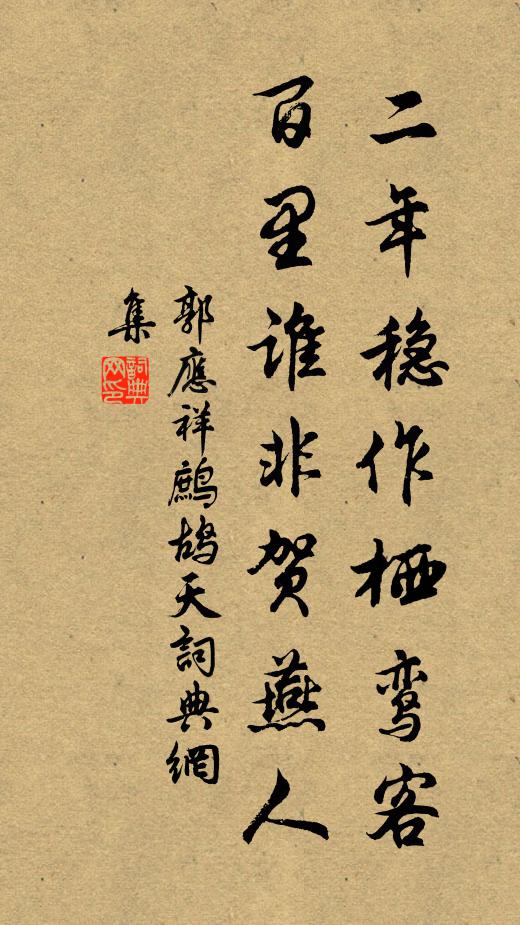 二年稳作栖鸾客
百里谁非贺燕人
郭應祥鹧鸪天詞典網
集
詞典
网印